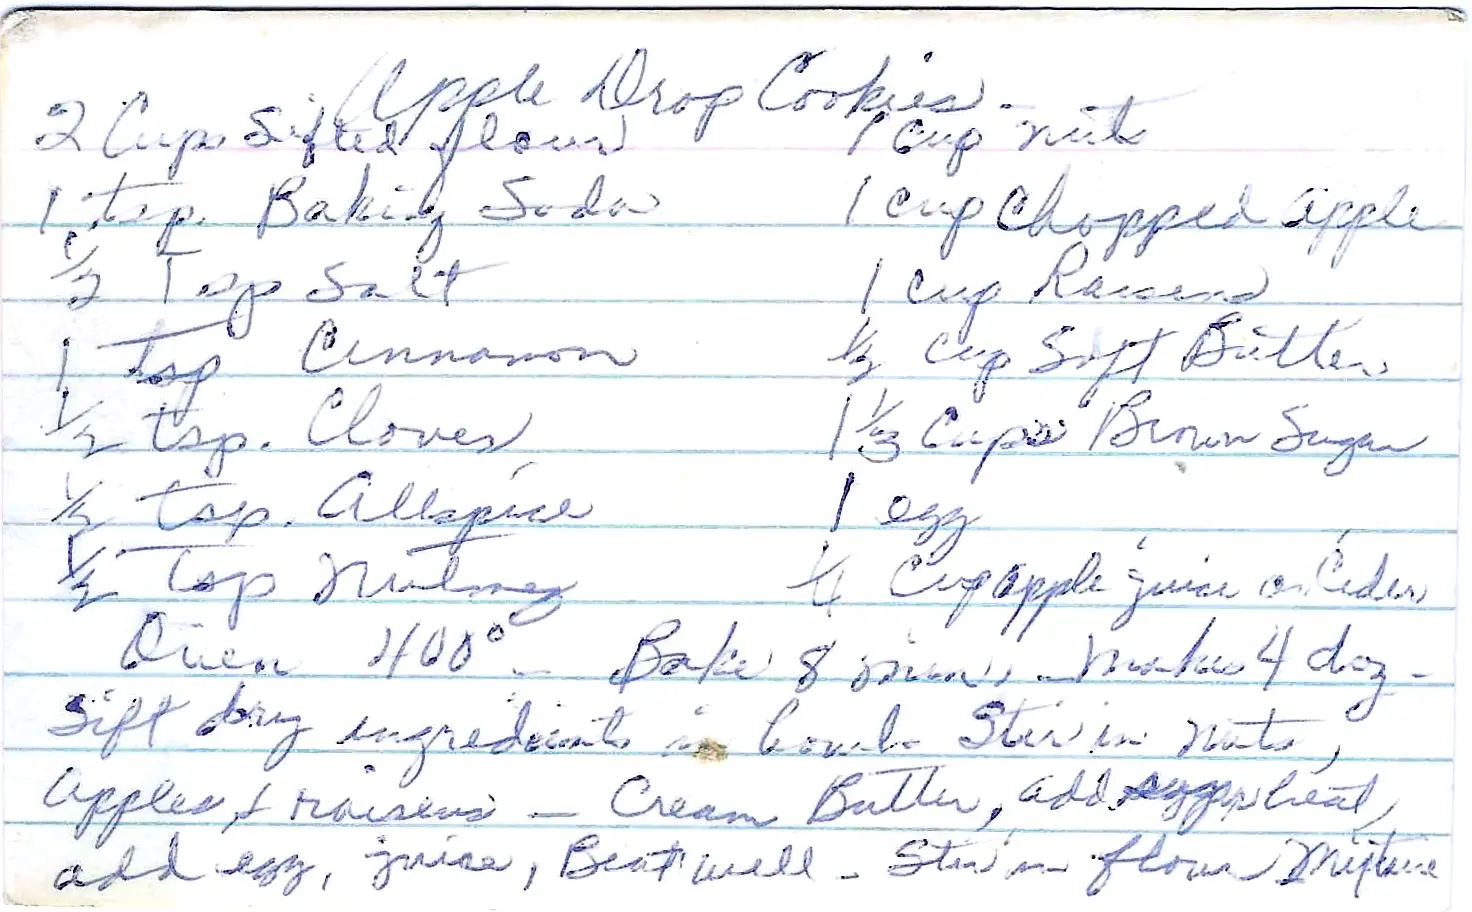 Apple Drop Cookies -
2 Cups Sifted flour
1 tsp. Baking Soda
1/2 Tsp Salt
1 Tsp Cinnamon
1/2 tsp. Cloves
1/2 tsp. Allspice
1/2 Tsp Nutmeg
1 cup nuts
1 cup Chopped apple
1 cup Raisens
1/2 cup Soft Butter
1 1/3 Cups Brown Sugar
1 egg
1/4 Cup apple juice or Cider
Oven 400° - Bake 8 min. - Makes 4 doz -
Sift dry ingredients in bowl - Stir in nuts,
apples, + raisens - Cream Butter, add beat,
add egg, juice, Beat well - Stir in flour Mixture